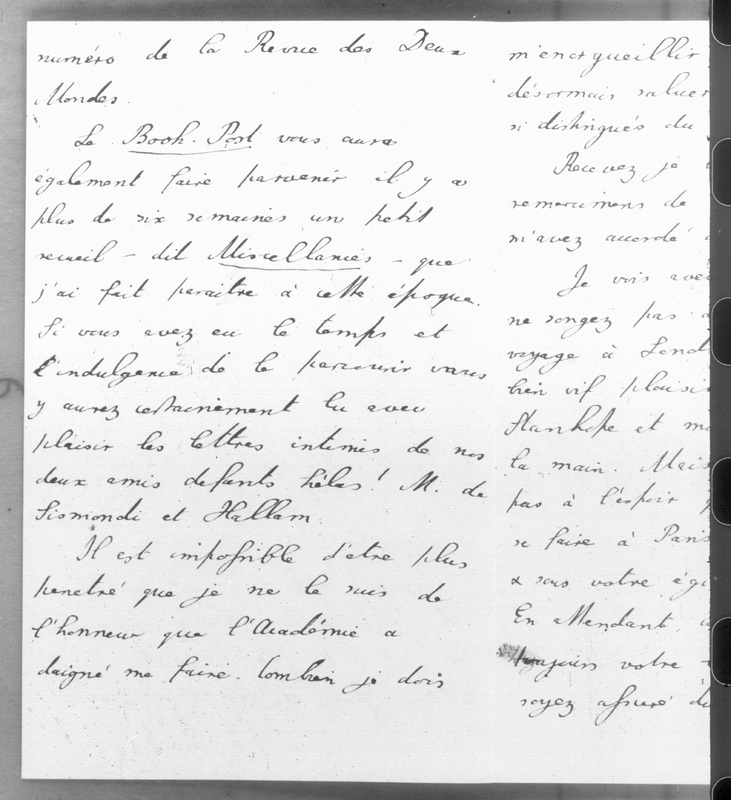 numéro de la Revue des Deux
Mondes.
Le Book-Post vous aura
également faire parvenir il y a
plus de six semaines un petit
recueil – dit Miscellanies – que
j'ai fait paraitre à cette époque.
Si vous avez eu le temps et
l'indulgence de le parcourir vous
y aurez certainement lu avec
plaisir les lettres intimes de nos
deux amis defunts hélas! M. de
Sismondi et Hallam.
Il est impossible d'être plus
penetré que je ne le suis de
l'honneur que l'Académie a
daigné me faire. Combien je dois
m'enorgueillir
désormais saluer
si distingués du
Recevez je
remercimens de
m'avez accordé
Je vois avec
ne songez pas
voyage à Lond
bien vif plaisir
Stanhope et m
la main. Mais
pas à l'espoir
se faire à Paris
& sous votre égi
En attendant,
toujours votre
soyez assuré du